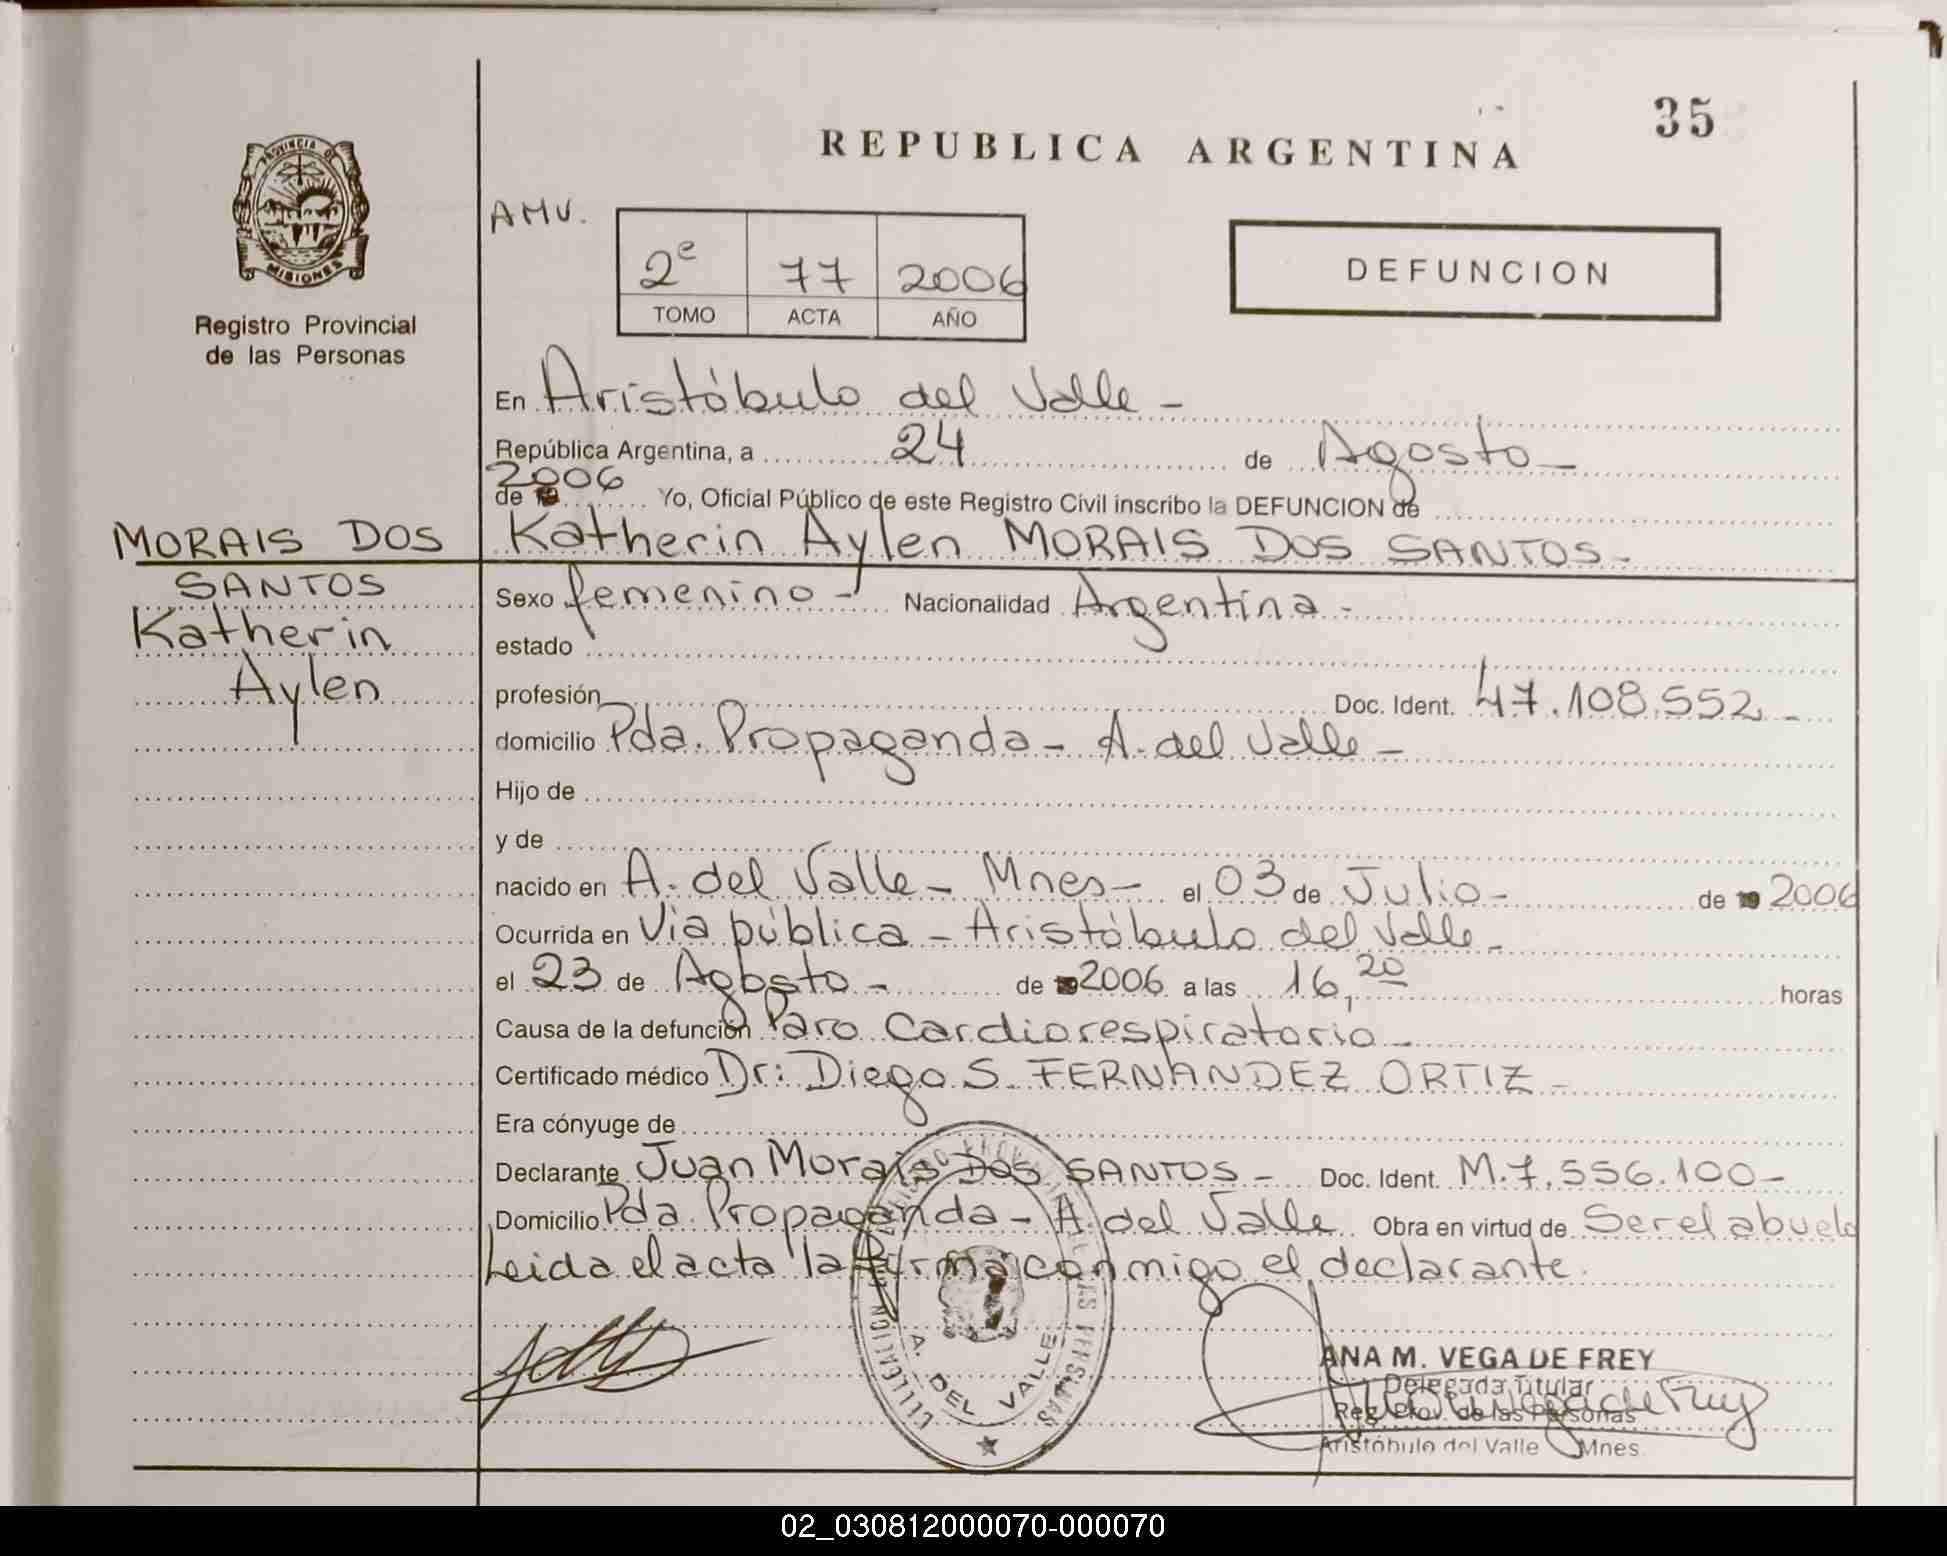 35
REPUBLICA ARGENTINA
PROVINCIA DE
MISIONES
Registro Provincial
de las Personas
AMV.
2e 77 2006
TOMO ACTA AÑO
DEFUNCION
En Aristóbulo del Valle -
República Argentina, a 24 de Agosto -
de 2006 Yo, Oficial Público de este Registro Civil inscribo la DEFUNCION de
MORAIS DOS
SANTOS
Katherin
Aylen
Katherin Aylen MORAIS DOS SANTOS -
Sexo femenino - Nacionalidad Argentina -
estado
profesión Doc. Ident. 47.108.552 -
domicilio Pda. Propaganda - A. del Valle -
Hijo de
y de
nacido en A. del Valle - Mnes - el 03 de Julio - de 19 2006
Ocurrida en Vía pública - Aristóbulo del Valle -
el 23 de Agosto - de 2006 a las 16,20 horas
Causa de la defunción Paro Cardiorespiratorio -
Certificado médico Dr: Diego S. FERNANDEZ ORTIZ -
Era cónyuge de
Declarante Juan Morais Dos SANTOS - Doc. Ident. M.7.556.100 -
Domicilio Pda. Propaganda - A. del Valle Obra en virtud de Ser el abuelo
Leida el acta la firma conmigo el declarante.
A. DEL VALLE
ANA M. VEGA DE FREY
Delegada Titular
Reg. Prov. de las Personas
Aristóbulo del Valle Mnes.
02_030812000070-000070